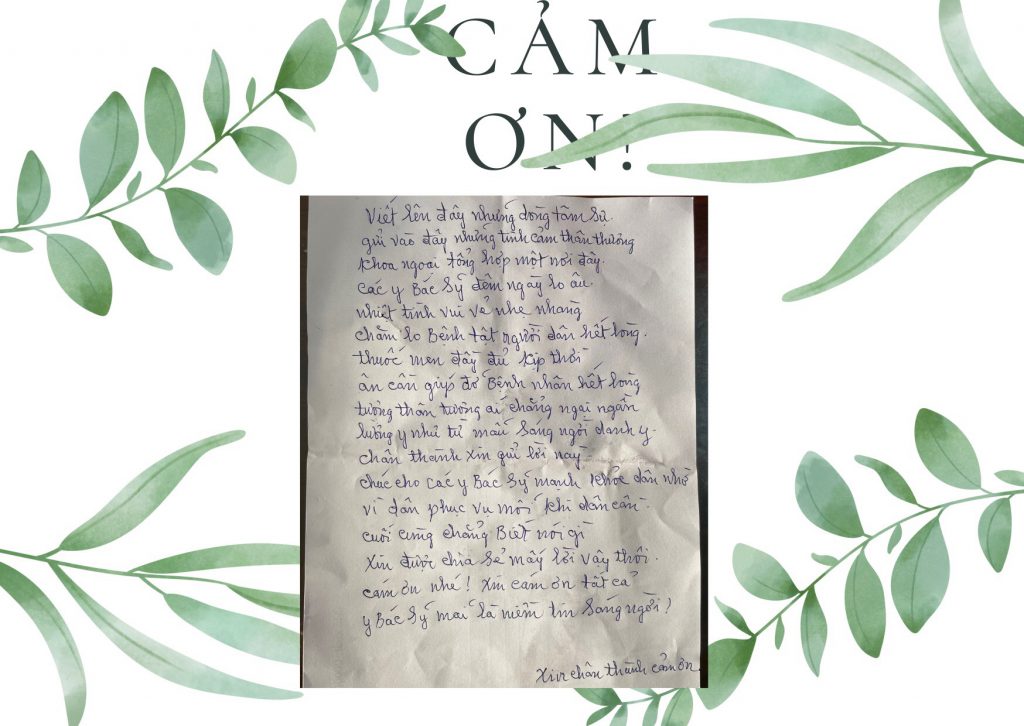 CẢM
ƠN!
Viết lên đây những dòng tâm sự.
gửi vào đây những tình cảm thân thương
khoa ngoại tổng hợp một nơi đây.
các y Bác Sỹ đêm ngày lo âu
nhiệt tình vui vẻ nhẹ nhàng
chăm lo Bệnh tật người dân hết lòng.
thuốc men đầy đủ kịp thời
ân cần giúp đỡ Bệnh nhân hết lòng
tương thân tương ái chẳng ngại ngần
lương y như từ mẫu sáng ngời danh y.
chân thành xin gửi lời này
chúc cho các y Bác Sỹ mạnh khỏe dân nhờ
vì dân phục vụ mỗi khi dân cần.
cuối cùng chẳng Biết nói gì
Xin được chia sẻ mấy lời vậy thôi.
cám ơn nhé! Xin cám ơn tất cả
y Bác Sỹ mãi là niềm tin sáng ngời!
Xin chân thành cảm ơn